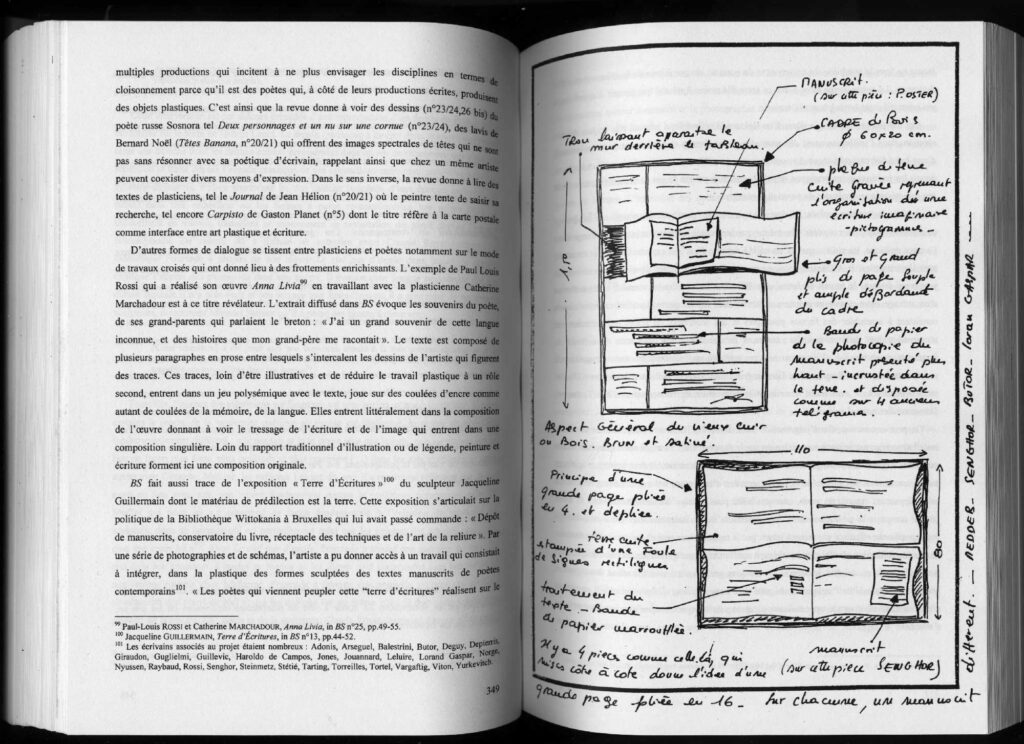 multiples productions qui incitent à ne plus envisager les disciplines en termes de
cloisonnement parce qu'il est des poètes qui, à côté de leurs productions écrites, produisent
des objets plastiques. C'est ainsi que la revue donne à voir des dessins (n°23/24,26 bis) du
poète russe Sosnora tel Deux personnages et un nu sur une cornue (n°23/24), des lavis de
Bernard Noël (Têtes Banana, n°20/21) qui offrent des images spectrales de têtes qui ne sont
pas sans résonner avec sa poétique d'écrivain, rappelant ainsi que chez un même artiste
peuvent coexister divers moyens d'expression. Dans le sens inverse, la revue donne à lire des
textes de plasticiens, tel le Journal de Jean Hélion (n°20/21) où le peintre tente de saisir sa
recherche, tel encore Carpisto de Gaston Planet (n°5) dont le titre réfère à la carte postale
comme interface entre art plastique et écriture.
D'autres formes de dialogue se tissent entre plasticiens et poètes notamment sur le mode
de travaux croisés qui ont donné lieu à des frottements enrichissants. L'exemple de Paul Louis
Rossi qui a réalisé son œuvre Anna Livia99 en travaillant avec la plasticienne Catherine
Marchadour est à ce titre révélateur. L'extrait diffusé dans BS évoque les souvenirs du poète,
de ses grand-parents qui parlaient le breton : « J'ai un grand souvenir de cette langue
inconnue, et des histoires que mon grand-père me racontait ». Le texte est composé de
plusieurs paragraphes en prose entre lesquels s'intercalent les dessins de l'artiste qui figurent
des traces. Ces traces, loin d'être illustratives et de réduire le travail plastique à un rôle
second, entrent dans un jeu polysémique avec le texte, joue sur des coulées d'encre comme
autant de coulées de la mémoire, de la langue. Elles entrent littéralement dans la composition
de l'œuvre donnant à voir le tressage de l'écriture et de l'image qui entrent dans une
composition singulière. Loin du rapport traditionnel d'illustration ou de légende, peinture et
écriture forment ici une composition originale.
BS fait aussi trace de l'exposition « Terre d'Écritures »100 du sculpteur Jacqueline
Guillermain dont le matériau de prédilection est la terre. Cette exposition s'articulait sur la
politique de la Bibliothèque Wittokania à Bruxelles qui lui avait passé commande : « Dépôt
de manuscrits, conservatoire du livre, réceptacle des techniques et de l'art de la reliure ». Par
une série de photographies et de schémas, l'artiste a pu donner accès à un travail qui consistait
à intégrer, dans la plastique des formes sculptées des textes manuscrits de poètes
contemporains101. « Les poètes qui viennent peupler cette "terre d'écritures" réalisent sur le
99 Paul-Louis ROSSI et Catherine MARCHADOUR, Anna Livia, in BS n°25, pp.49-55.
100 Jacqueline GUILLERMAIN, Terre d'Écritures, in BS n°13, pp.44-52.
101 Les écrivains associés au projet étaient nombreux : Adonis, Arseguel, Balestrini, Butor, Deguy, Depierris,
Giraudon, Guglielmi, Guillevic, Haroldo de Campos, Jones, Jouannard, Leluire, Lorand Gaspar, Norge,
Nyussen, Raybaud, Rossi, Senghor, Steinmetz, Stétié, Tarting, Torreilles, Tortel, Vargaftig, Viton, Yurkevitch.
349
MANUSCRIT.
(sur cette pièce : P.OSTER)
CADRE de Bois
φ 60x20 cm.
Trou laissant apparaître le
mur derrière le tableau.
plaque de terre
cuite gravée reprenant
l'organisation d'une
écriture imaginaire
-pictogramme-
1,50
Gros et Grand
plis de page souple
et ample débordant
du cadre
Bande de papier
de la photocopie du
manuscrit présenté plus
haut - incrustée dans
la terre. et disposée
comme sur 4 anciens
télégrammes.
Aspect Général du vieux cuir
ou Bois. Brun et satiné.
110
Principe d'une
grande page pliée
en 4. et dépliée.
Terre cuite
estampée d'une Foule
de Signes rectilignes
80
traitement du
texte - Bande
de papier marouflée.
manuscrit
(sur cette pièce SENGHOR)
Il y a 4 pièces comme celle-là, qui
mises côte à côte donne l'idée d'une
grande page pliée en 16 - Sur chacune, un manuscrit
différent. - SENGHOR - BUTOR - Loran GASPAR